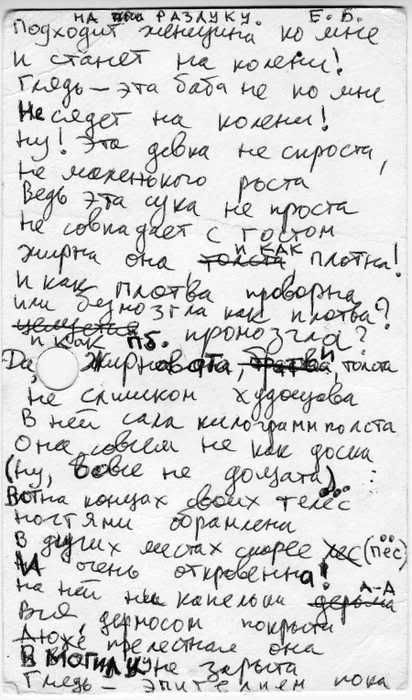 НА РАЗЛУКУ. Е. Б.
Подходит женщина ко мне
и станет на колени!
Глядь – эта баба не ко мне
Не сядет на колени!
Ну! Эта девка не спроста,
Не маленького роста
Ведь эта сука не проста
Не совпадает с гостом
и как
Жирна она, толста, плотна!
И как плотва проворна
или безмозгла как плотва?
и как пб. пронозгла?
Да, жирновата, толста
Не слишком худощава
В ней сала килограмм полста
Она совсем не как доска
(Ну, вовсе не дощата)
Вот на концах своих телес
ногтями обрамлена
В других местах скорее лес (пёс)
очень откровенна!
А-А
на ней ни капельки дерьма
Вся дермосом покрыта
Дюже прелестная она
В могилку не зарыта
Глядь – эпителием пока